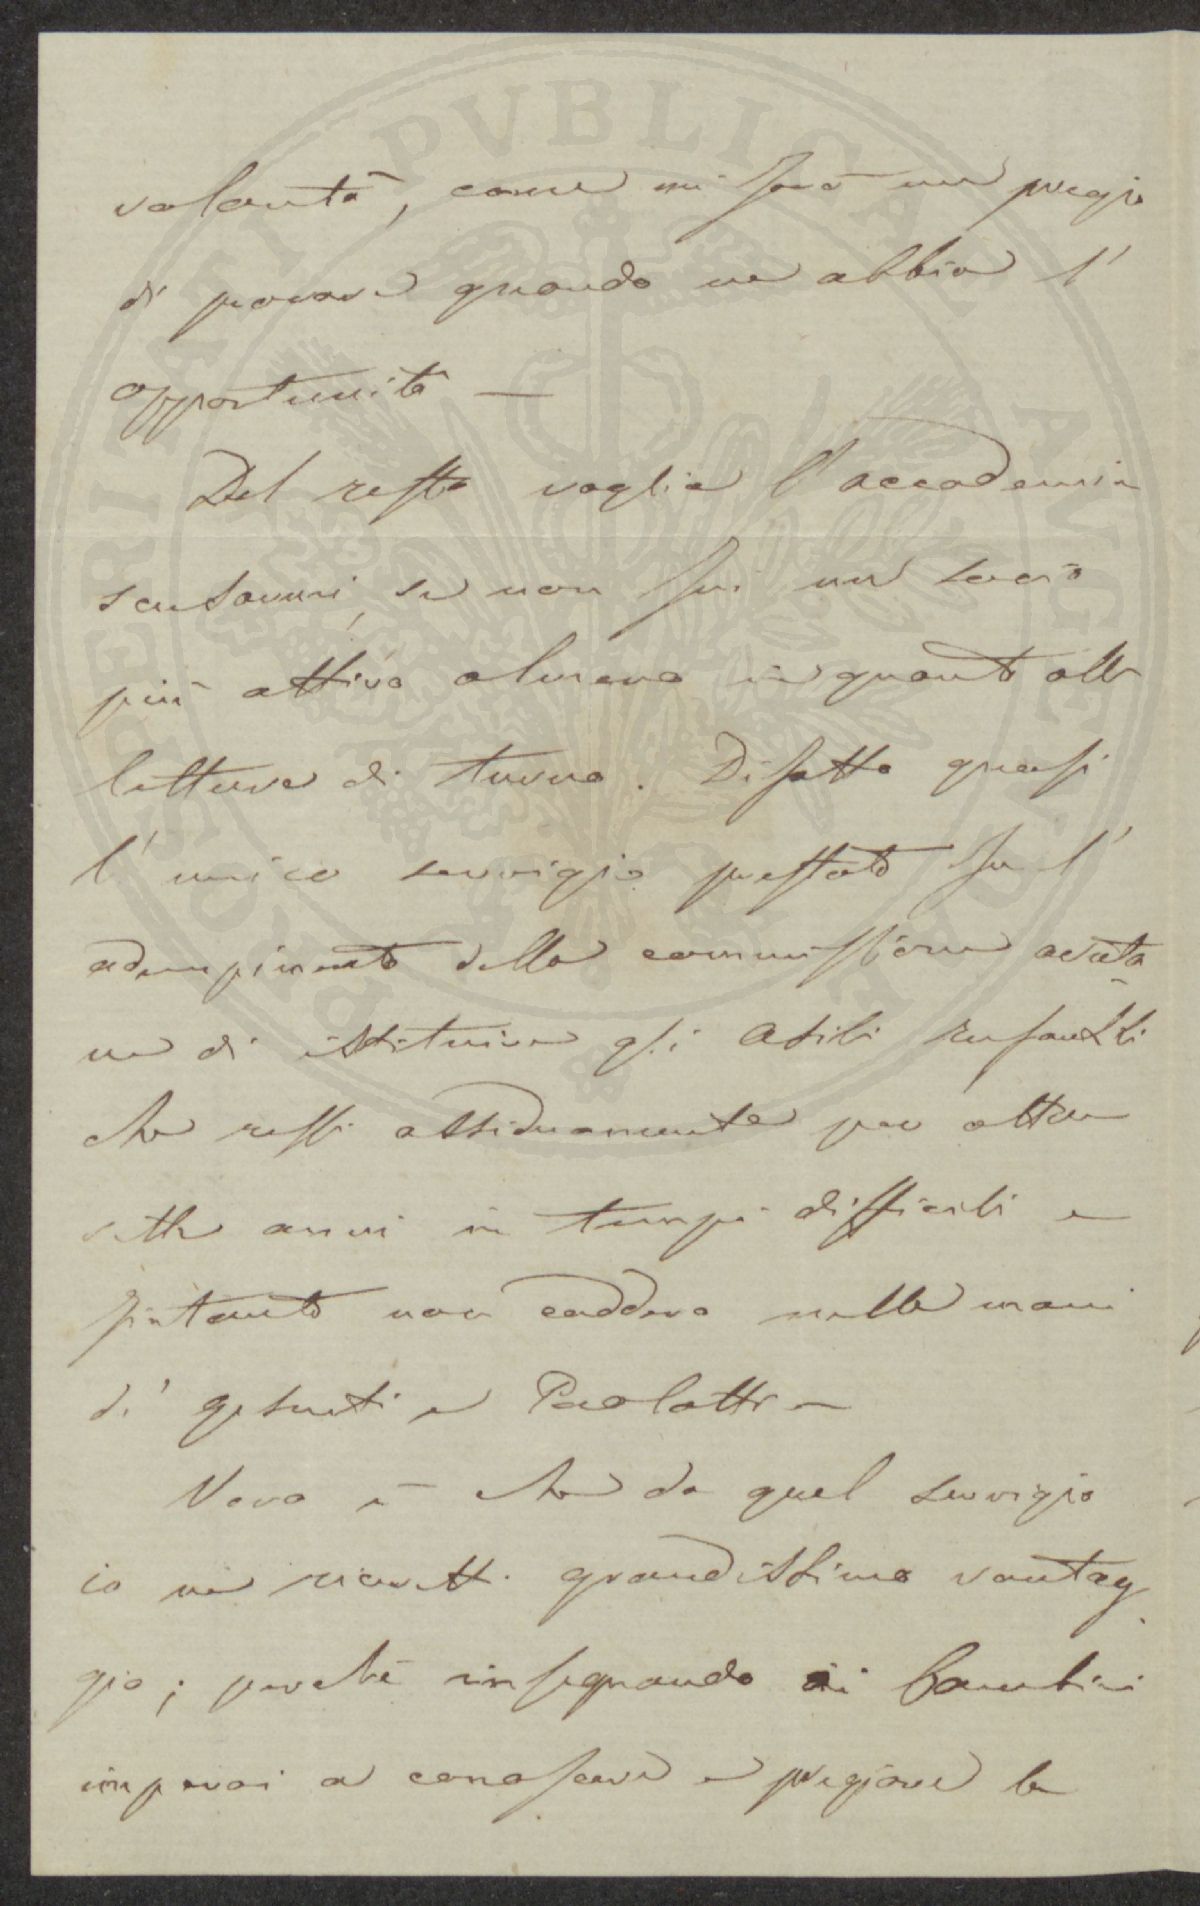 volontà, come mi farò un pregio
di provare quando ne abbia l'
opportunità —
Del resto voglia l'accademia
scusarmi, se non fui un socio
più attivo almeno in quanto alle
letture di turno. Difatto quasi
l'unico servigio prestato fu l'
adempimento della commissione avuta
ne di istituire gli Asili Infantili
che ressi assiduamente per oltre
sette anni in tempi difficili e
fintanto non caddero nelle mani
di gesuiti e Paolotti —
Vero è che da quel servigio
io ne ricavetti grandissimo vantag
gio; perchè insegnando ai bambini
imparai a conoscere e pregiare le
PROSPERITATI PVBLICAE AVGENDAE